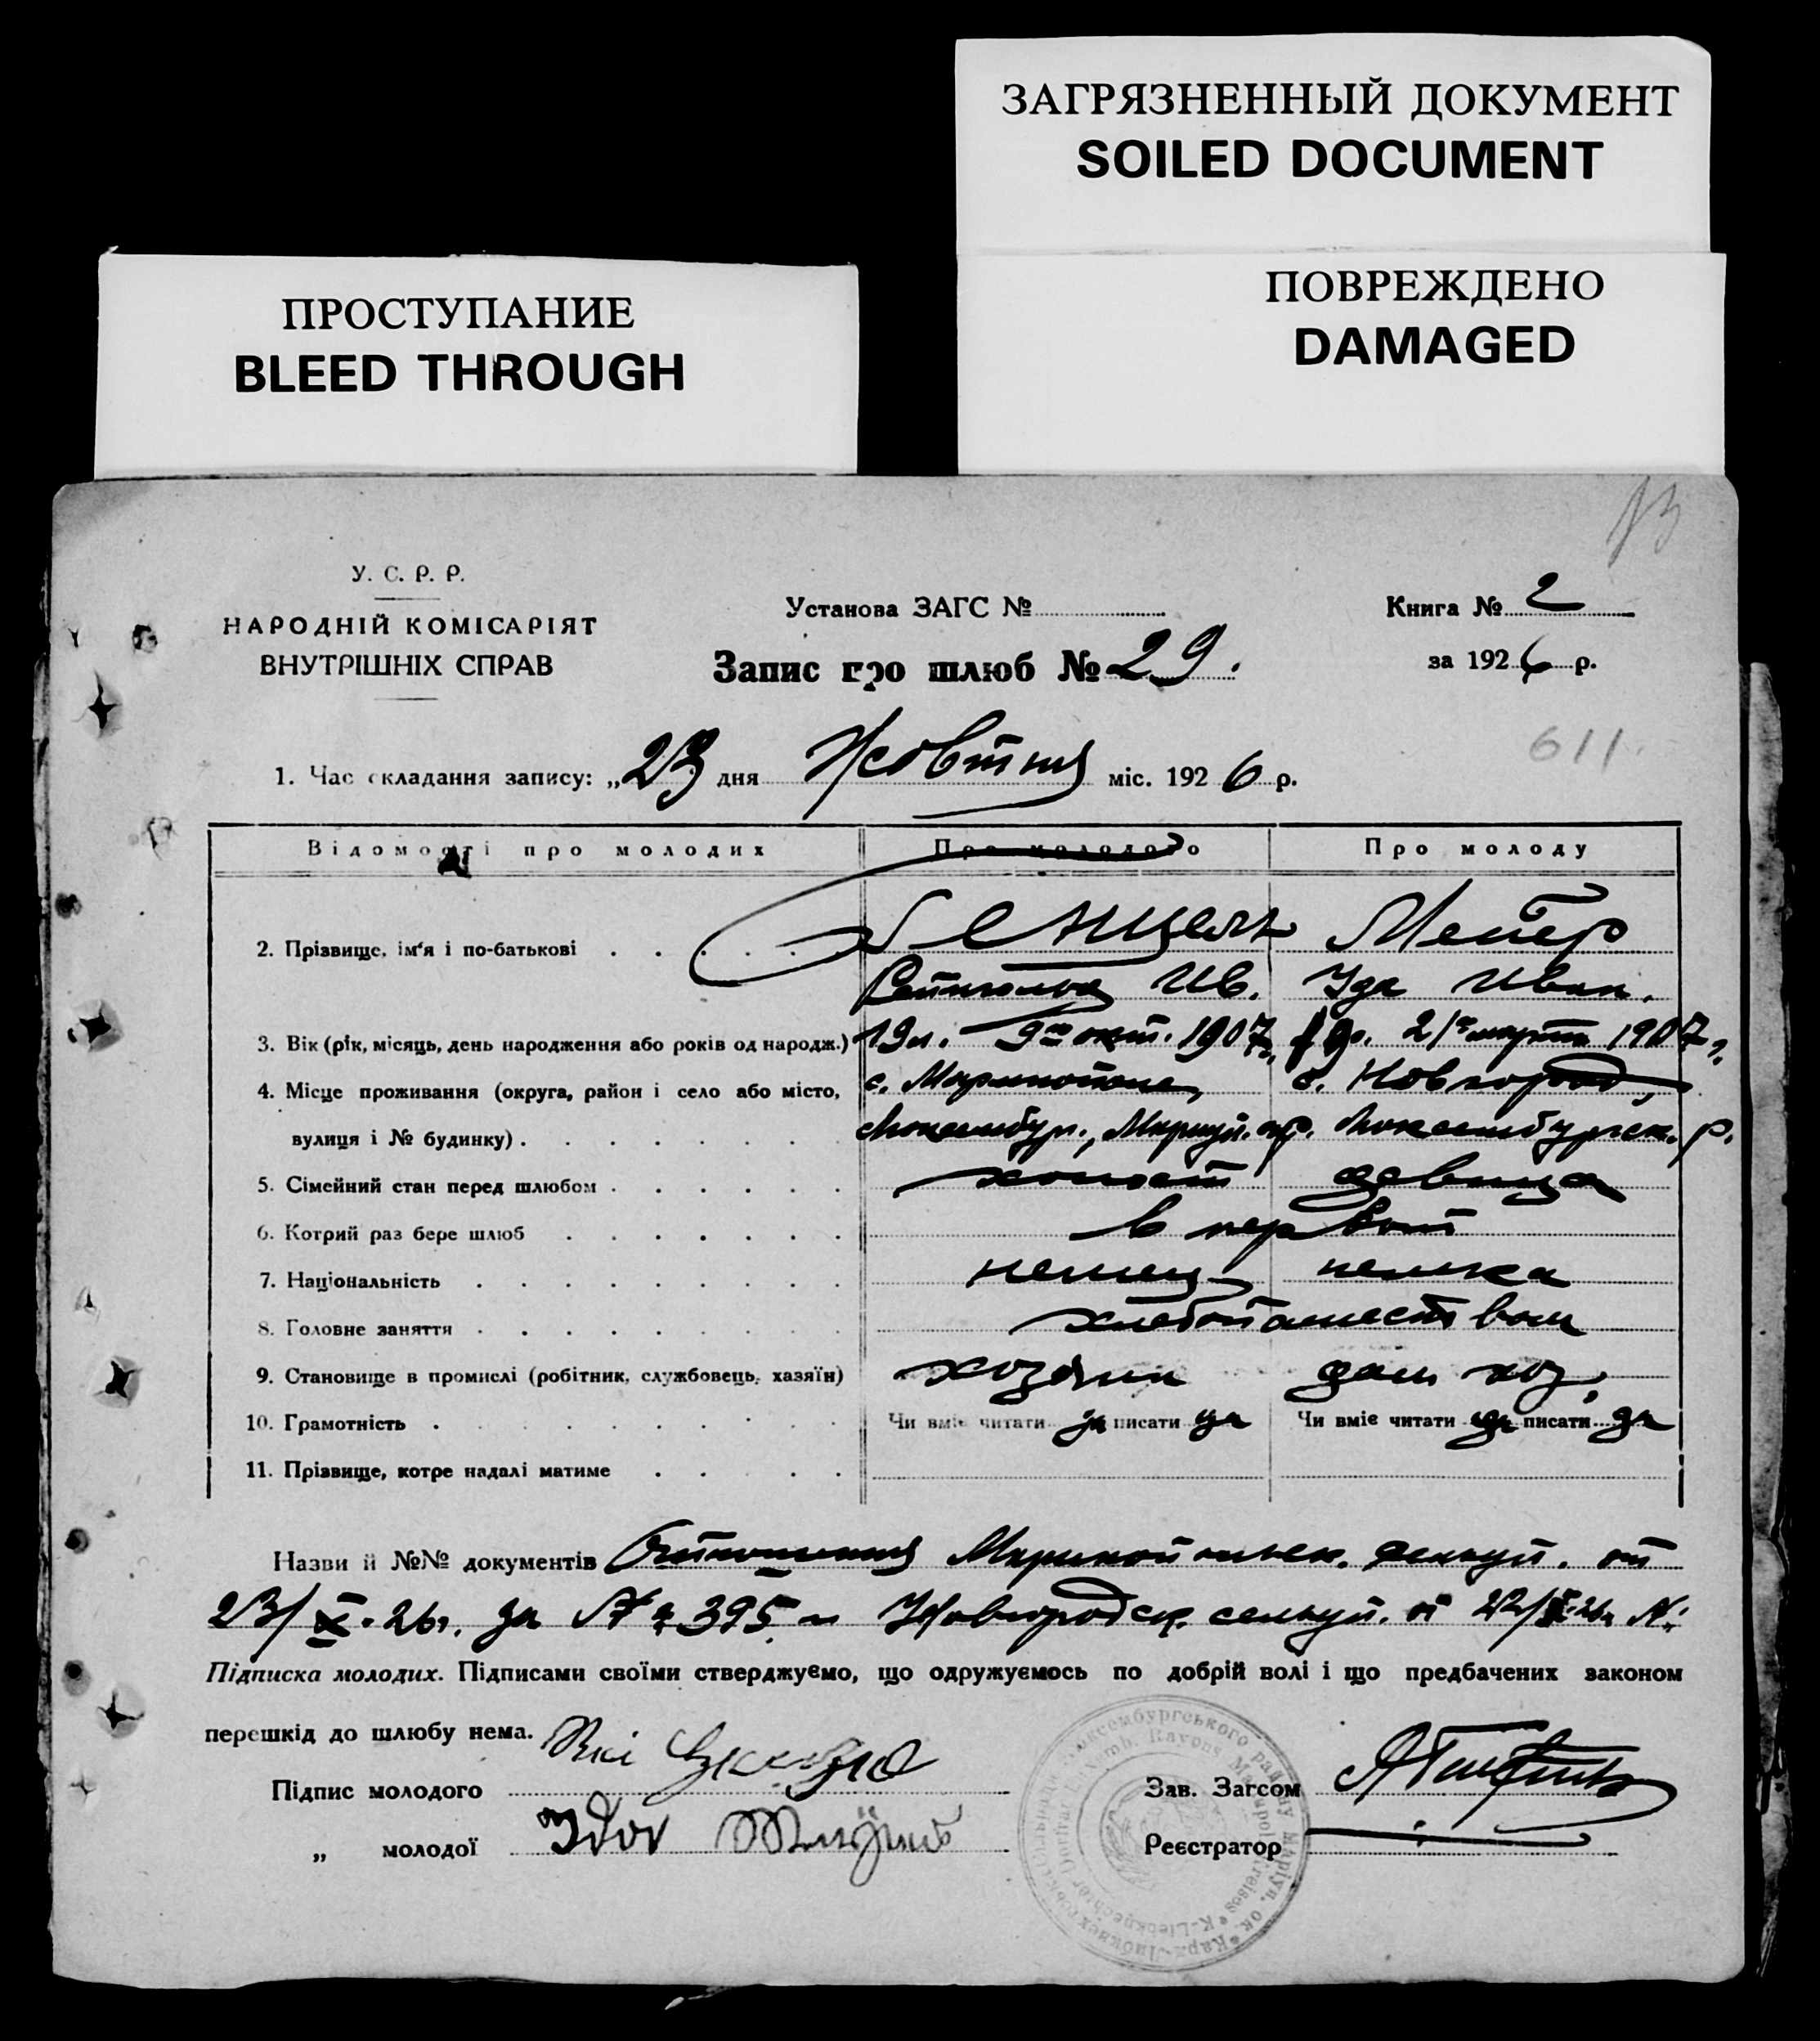 ЗАГРЯЗНЕННЫЙ ДОКУМЕНТ
SOILED DOCUMENT
ПРОСТУПАНИЕ
BLEED THROUGH
ПОВРЕЖДЕНО
DAMAGED
13
У. С. Р. Р.
НАРОДНІЙ КОМІСАРІЯТ
ВНУТРІШНІХ СПРАВ
Установа ЗАГС №
Книга № 2
Запис про шлюб № 29.
за 1926 р.
611.
1. Час складання запису: „23 дня Жовтня міс. 1926 р.
Відомості про молодих Про молодого Про молоду
2. Прізвище, ім'я і по-батькові Мейер
Ив. Ида Иван.
3. Вік (рік, місяць, день народження або років од народж.) 19 л. 9го окт. 1907 г. 19 21го марта 1907 г.
4. Місце проживання (округа, район і село або місто, с. Мариполе, с. Новгород,
вулиця і № будинку) Люксембур., Мариуп. окр. Люксембургск. р.
5. Сімейний стан перед шлюбом холост девица
6. Котрий раз бере шлюб в первый
7. Національність немец немка
8. Головне заняття хлебопашеством
9. Становище в промислі (робітник, службовець, хазяїн) хозяин дом. хоз.
10. Грамотність Чи вміє читати да писати да Чи вміє читати да писати да
11. Прізвище, котре надалі матиме
Назви й №№ документів сельсуи. от
23/X-26 г. за № 395 и Новгородск. сельсуи. от 22/X-26 г. №
Підписка молодих. Підписами своїми стверджуємо, що одружуємось по добрій волі і що предбачених законом
перешкід до шлюбу нема.
Підпис молодого
Зав. Загсом
„ молодої Ида
Реєстратор